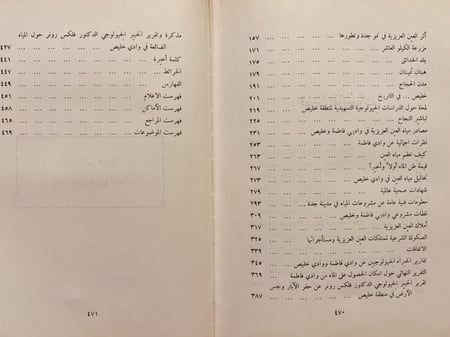 أثر العين العزيزية في نمو جدة وتطورها ... ... ... ١٥٧
مزرعة الكيلو العاشر ... ... ... ١٧١
بلد الحدائق ... ... ... ١٧٥
هبتان ثمينتان ... ... ... ١٧٩
مدن الحجاج ... ... ... ١٩١
خليص .. في التاريخ ... ... ... ٢٠١
لمحة حول الدراسات الجيولوجية التمهيدية لمنطقة خليص ... ٢١٩
تباشير النجاح ... ... ... ٢٢٥
مصادر مياه العين العزيزية في وادي فاطمة وخليص ... ... ٢٣١
نظرات اجمالية عن وادي فاطمة ... ... ... ٢٤٣
كيف تعقم مياه العين ... ... ... ٢٥٣
قيمة طن الماء أولاً وأخيراً ... ... ... ٢٦٧
تحاليل مياه العين في وادي خليص ... ... ... ٢٧٣
شهادات صحية عالمية ... ... ... ٢٧٩
معلومات فنية عامة عن مشروعات المياه في مدينة جدة ... ٢٩٣
نفقات مشروعي وادي فاطمة وخليص ... ... ... ٣٠٩
أملاك العين العزيزية ... ... ... ٣١٧
الصكوك الشرعية لممتلكات العين العزيزية ومستأجراتها ... ٣٢٥
الاتفاقات ... ... ... ٣٣٩
تقارير الخبراء الجيولوجيين عن وادي فاطمة ووادي خليص ... ٣٤٥
التقرير النهائي حول امكان الحصول على الماء من وادي فاطمة ... ٣٦٩
تقرير الخبير الجيولوجي الدكتور فلكس رونر عن حفر الآبار وجس
الأرض في منطقة خليص ... ... ... ٣٨٧
٤٧٠
مذكرة وتقرير الخبير الجيولوجي الدكتور فلكس رونر حول المياه
الضائعة في وادي خليص ... ... ... ٤٢٧
كلمة أخيرة ... ... ... ٤٤١
الخرائط ... ... ... ٤٤٧
الفهارس ... ... ... ٤٤٩
فهرست الاعلام ... ... ... ٤٥١
فهرست الأماكن ... ... ... ٤٥٨
فهرست المراجع ... ... ... ٤٦٥
فهرست الموضوعات ... ... ... ٤٦٩
٤٧١